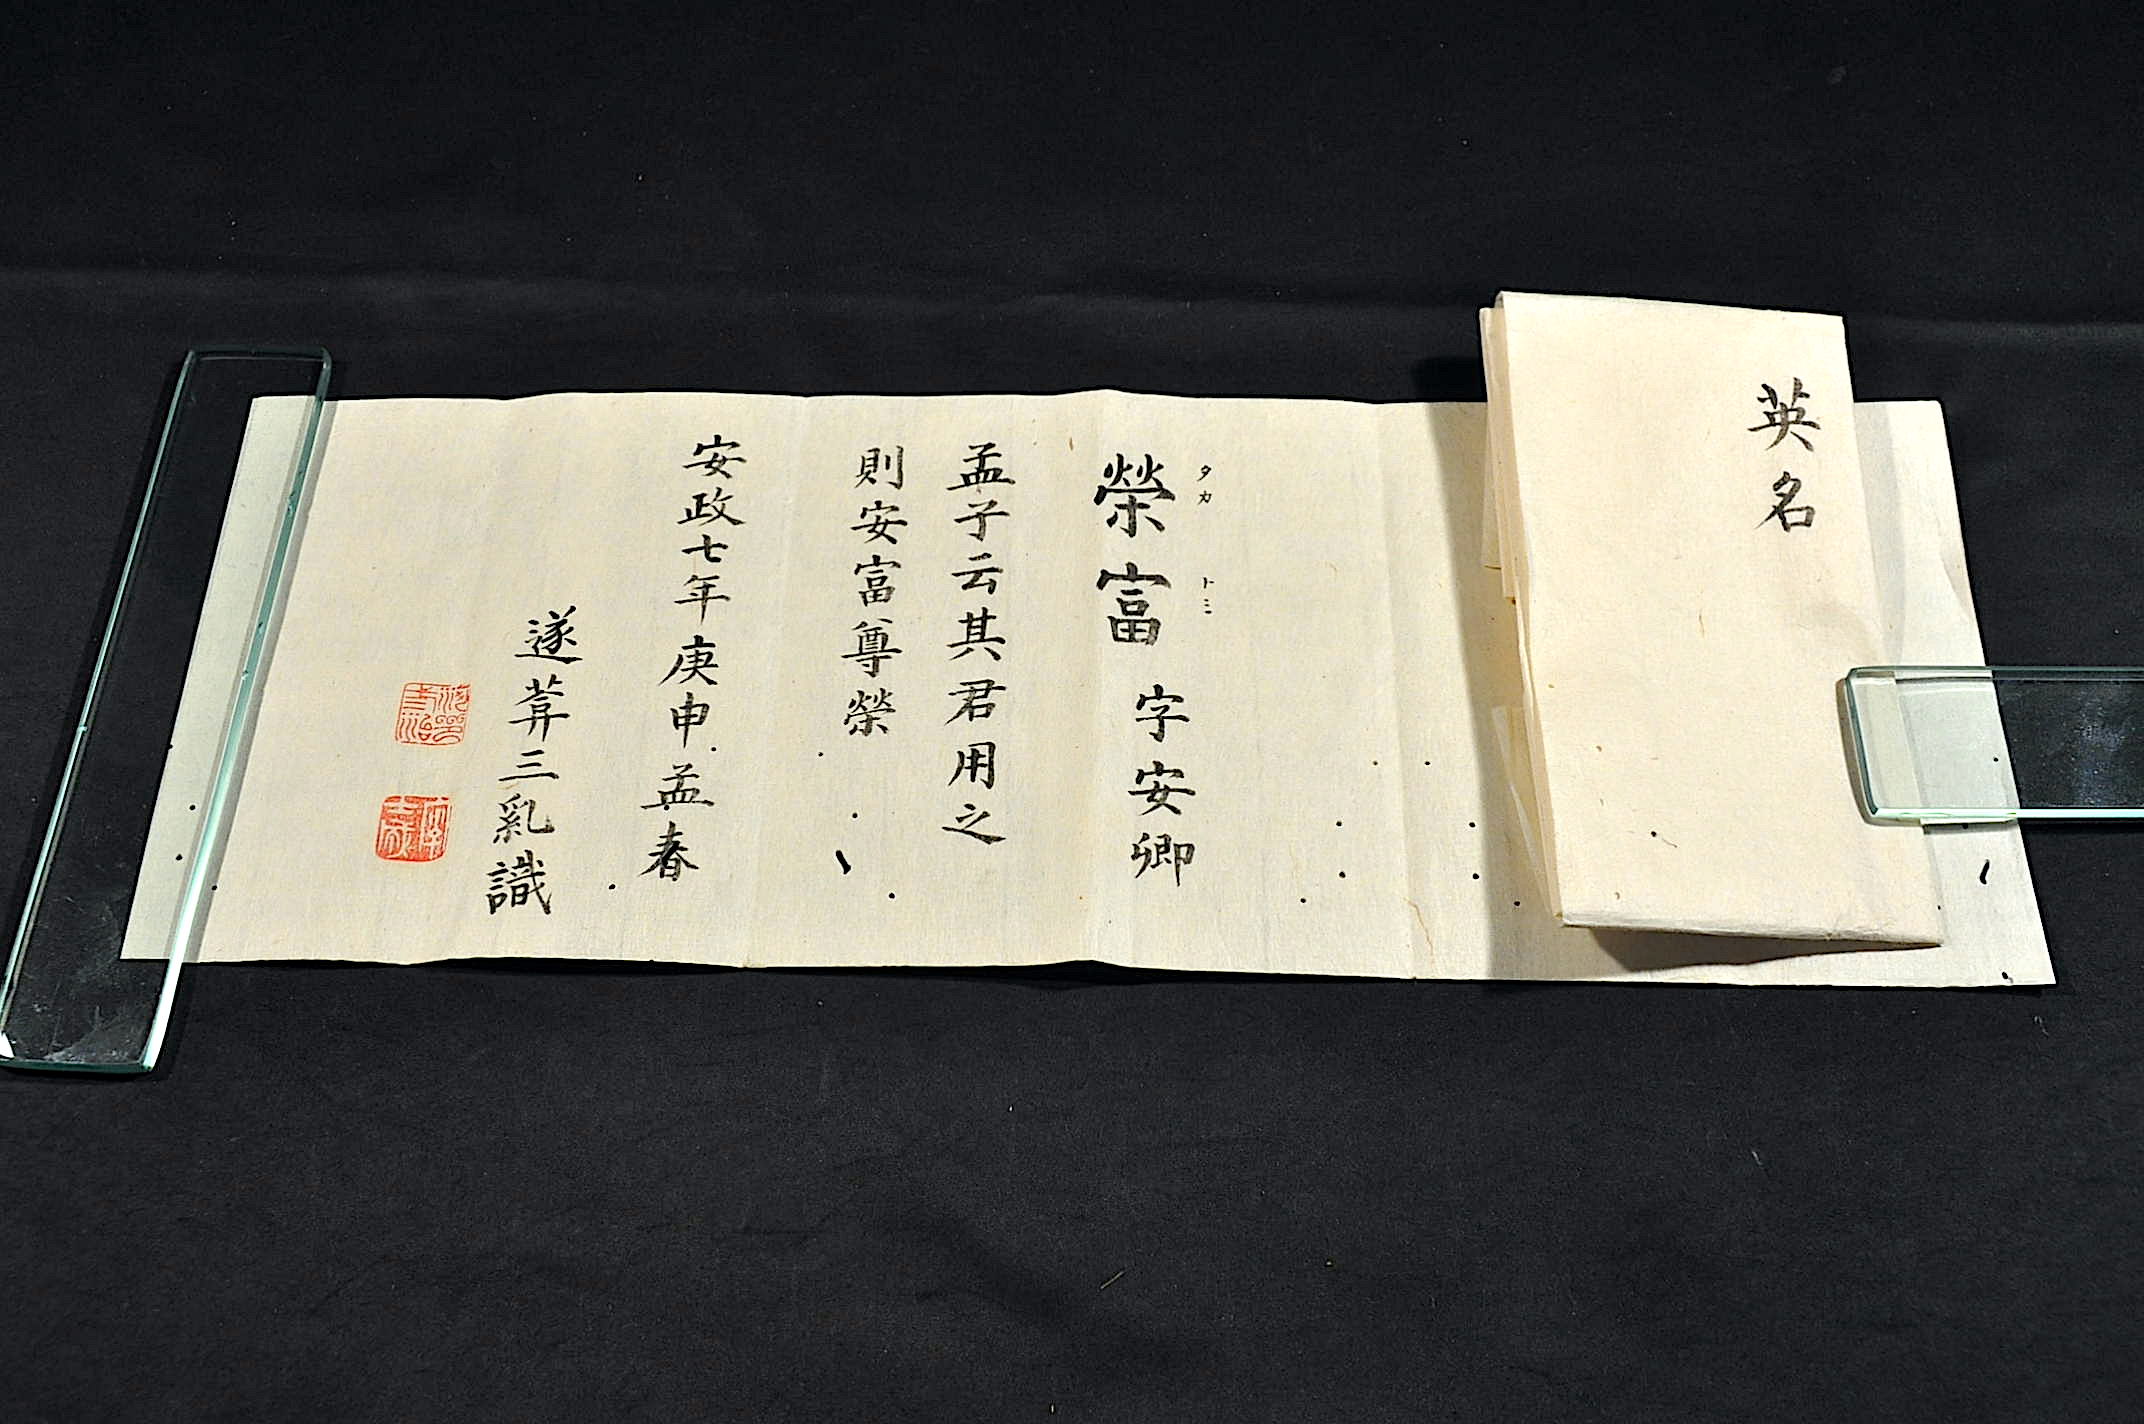 英名
タカ トミ
榮富 字安卿
孟子云其君用之
則安富尊榮
安政七年庚申孟春
遂葊三亂識